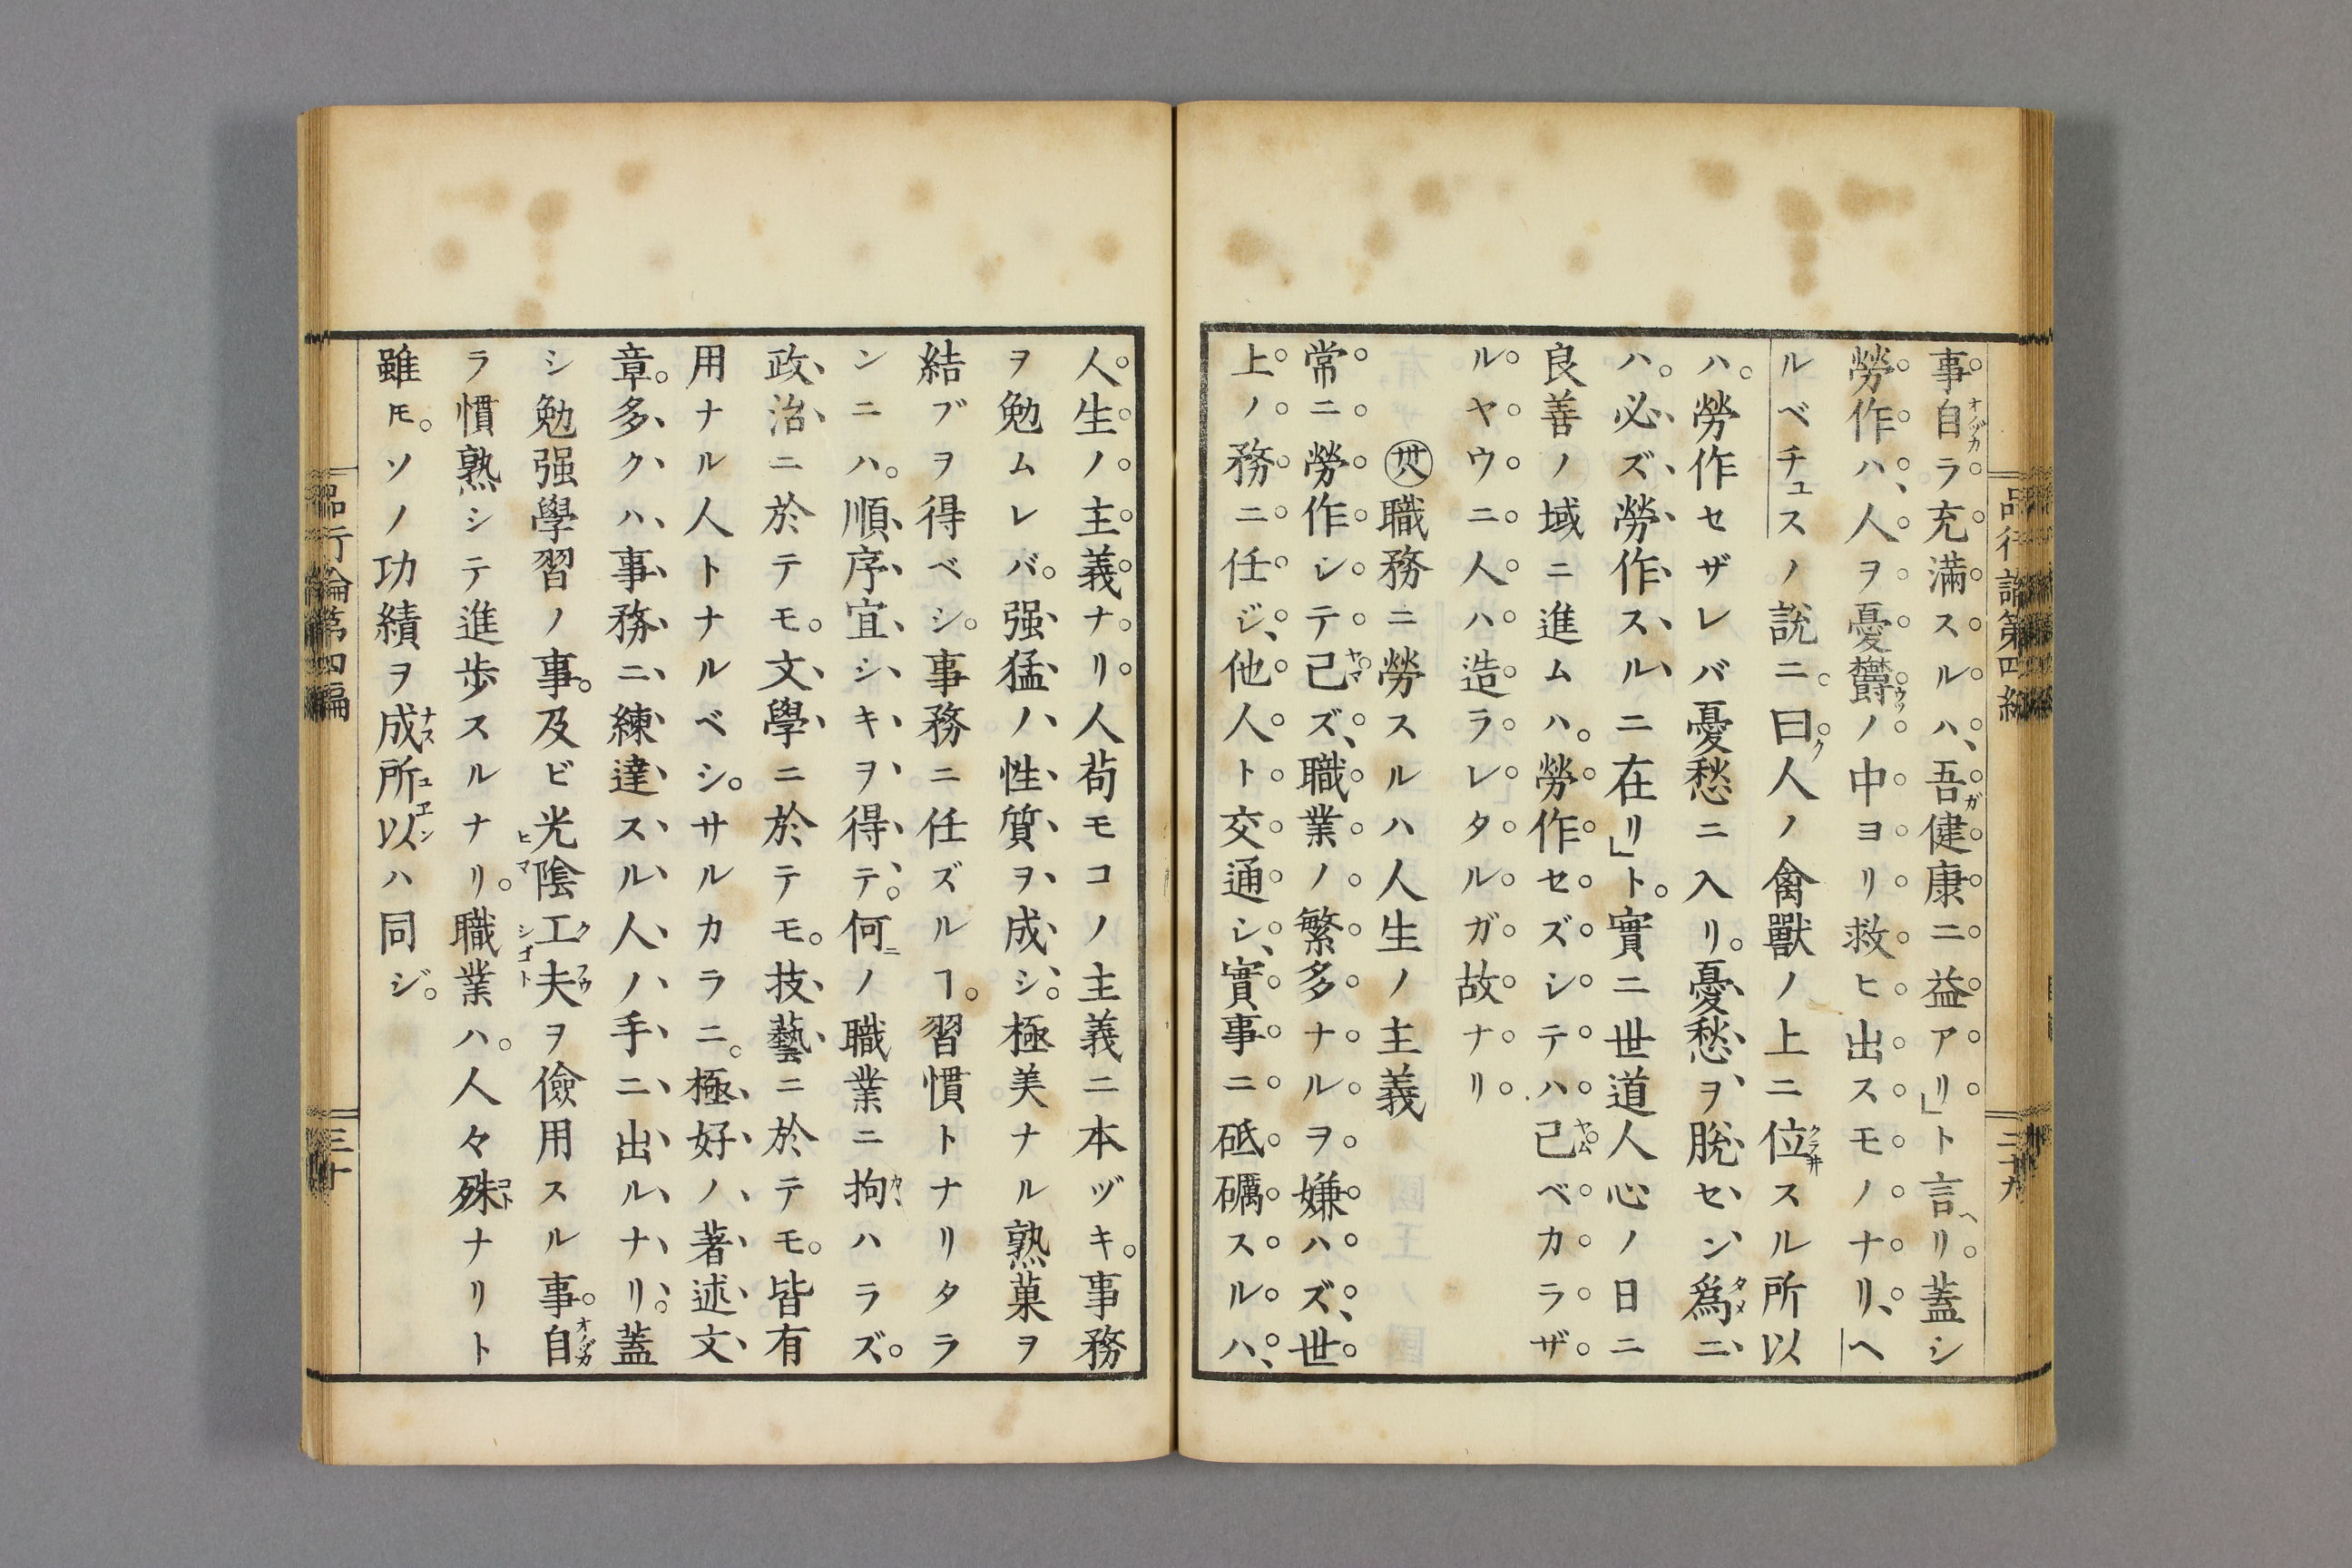 品行論第四編
二十九
事自ラ充滿スルハ、吾健康ニ益アリ」ト言ヘリ。蓋シ
勞作ハ、人ヲ憂欝ノ中ヨリ救ヒ出スモノナリ、ヘ
ルベチュスノ說ニ。曰ク人ノ禽獸ノ上ニ位スル所以
ハ。勞作セザレバ憂愁ニ入リ。憂愁ヲ脫セン爲ニ
ハ。必ズ勞作スルニ在リ」ト。實ニ世道人心ノ日ニ
良善ノ域ニ進ムハ。勞作セズシテハ已ベカラザ
ルヤウニ人ハ造ラレタルガ故ナリ
㊇職務ニ勞スルハ人生ノ主義
常ニ勞作シテ已ズ、職業ノ繁多ナルヲ嫌ハズ、世
上ノ務ニ任ジ、他人ト交通シ、實事ニ砥礪スルハ、
人生ノ主義ナリ人苟モコノ主義ニ本ヅキ。事務
ヲ勉ムレバ。强猛ノ性質ヲ成シ。極美ナル熟菓ヲ
結ブヲ得ベシ。事務ニ任ズルヿ。習慣トナリタラ
ンニハ。順序宜シキヲ得テ。何ノ職業ニ拘ハラズ。
政治ニ於テモ。文學ニ於テモ。技藝ニ於テモ。皆有
用ナル人トナルベシ。サルカラニ。極好ノ著述文
章。多クハ事務ニ練達スル人ノ手ニ出ルナリ。蓋
シ勉强學習ノ事。及ビ光陰工夫ヲ儉用スル事。自
ラ慣熟シテ進步スルナリ。職業ハ。人々殊ナリト
雖𪜈。ソノ功績ヲ成所以ハ同ジ。
品行論第四編
三十